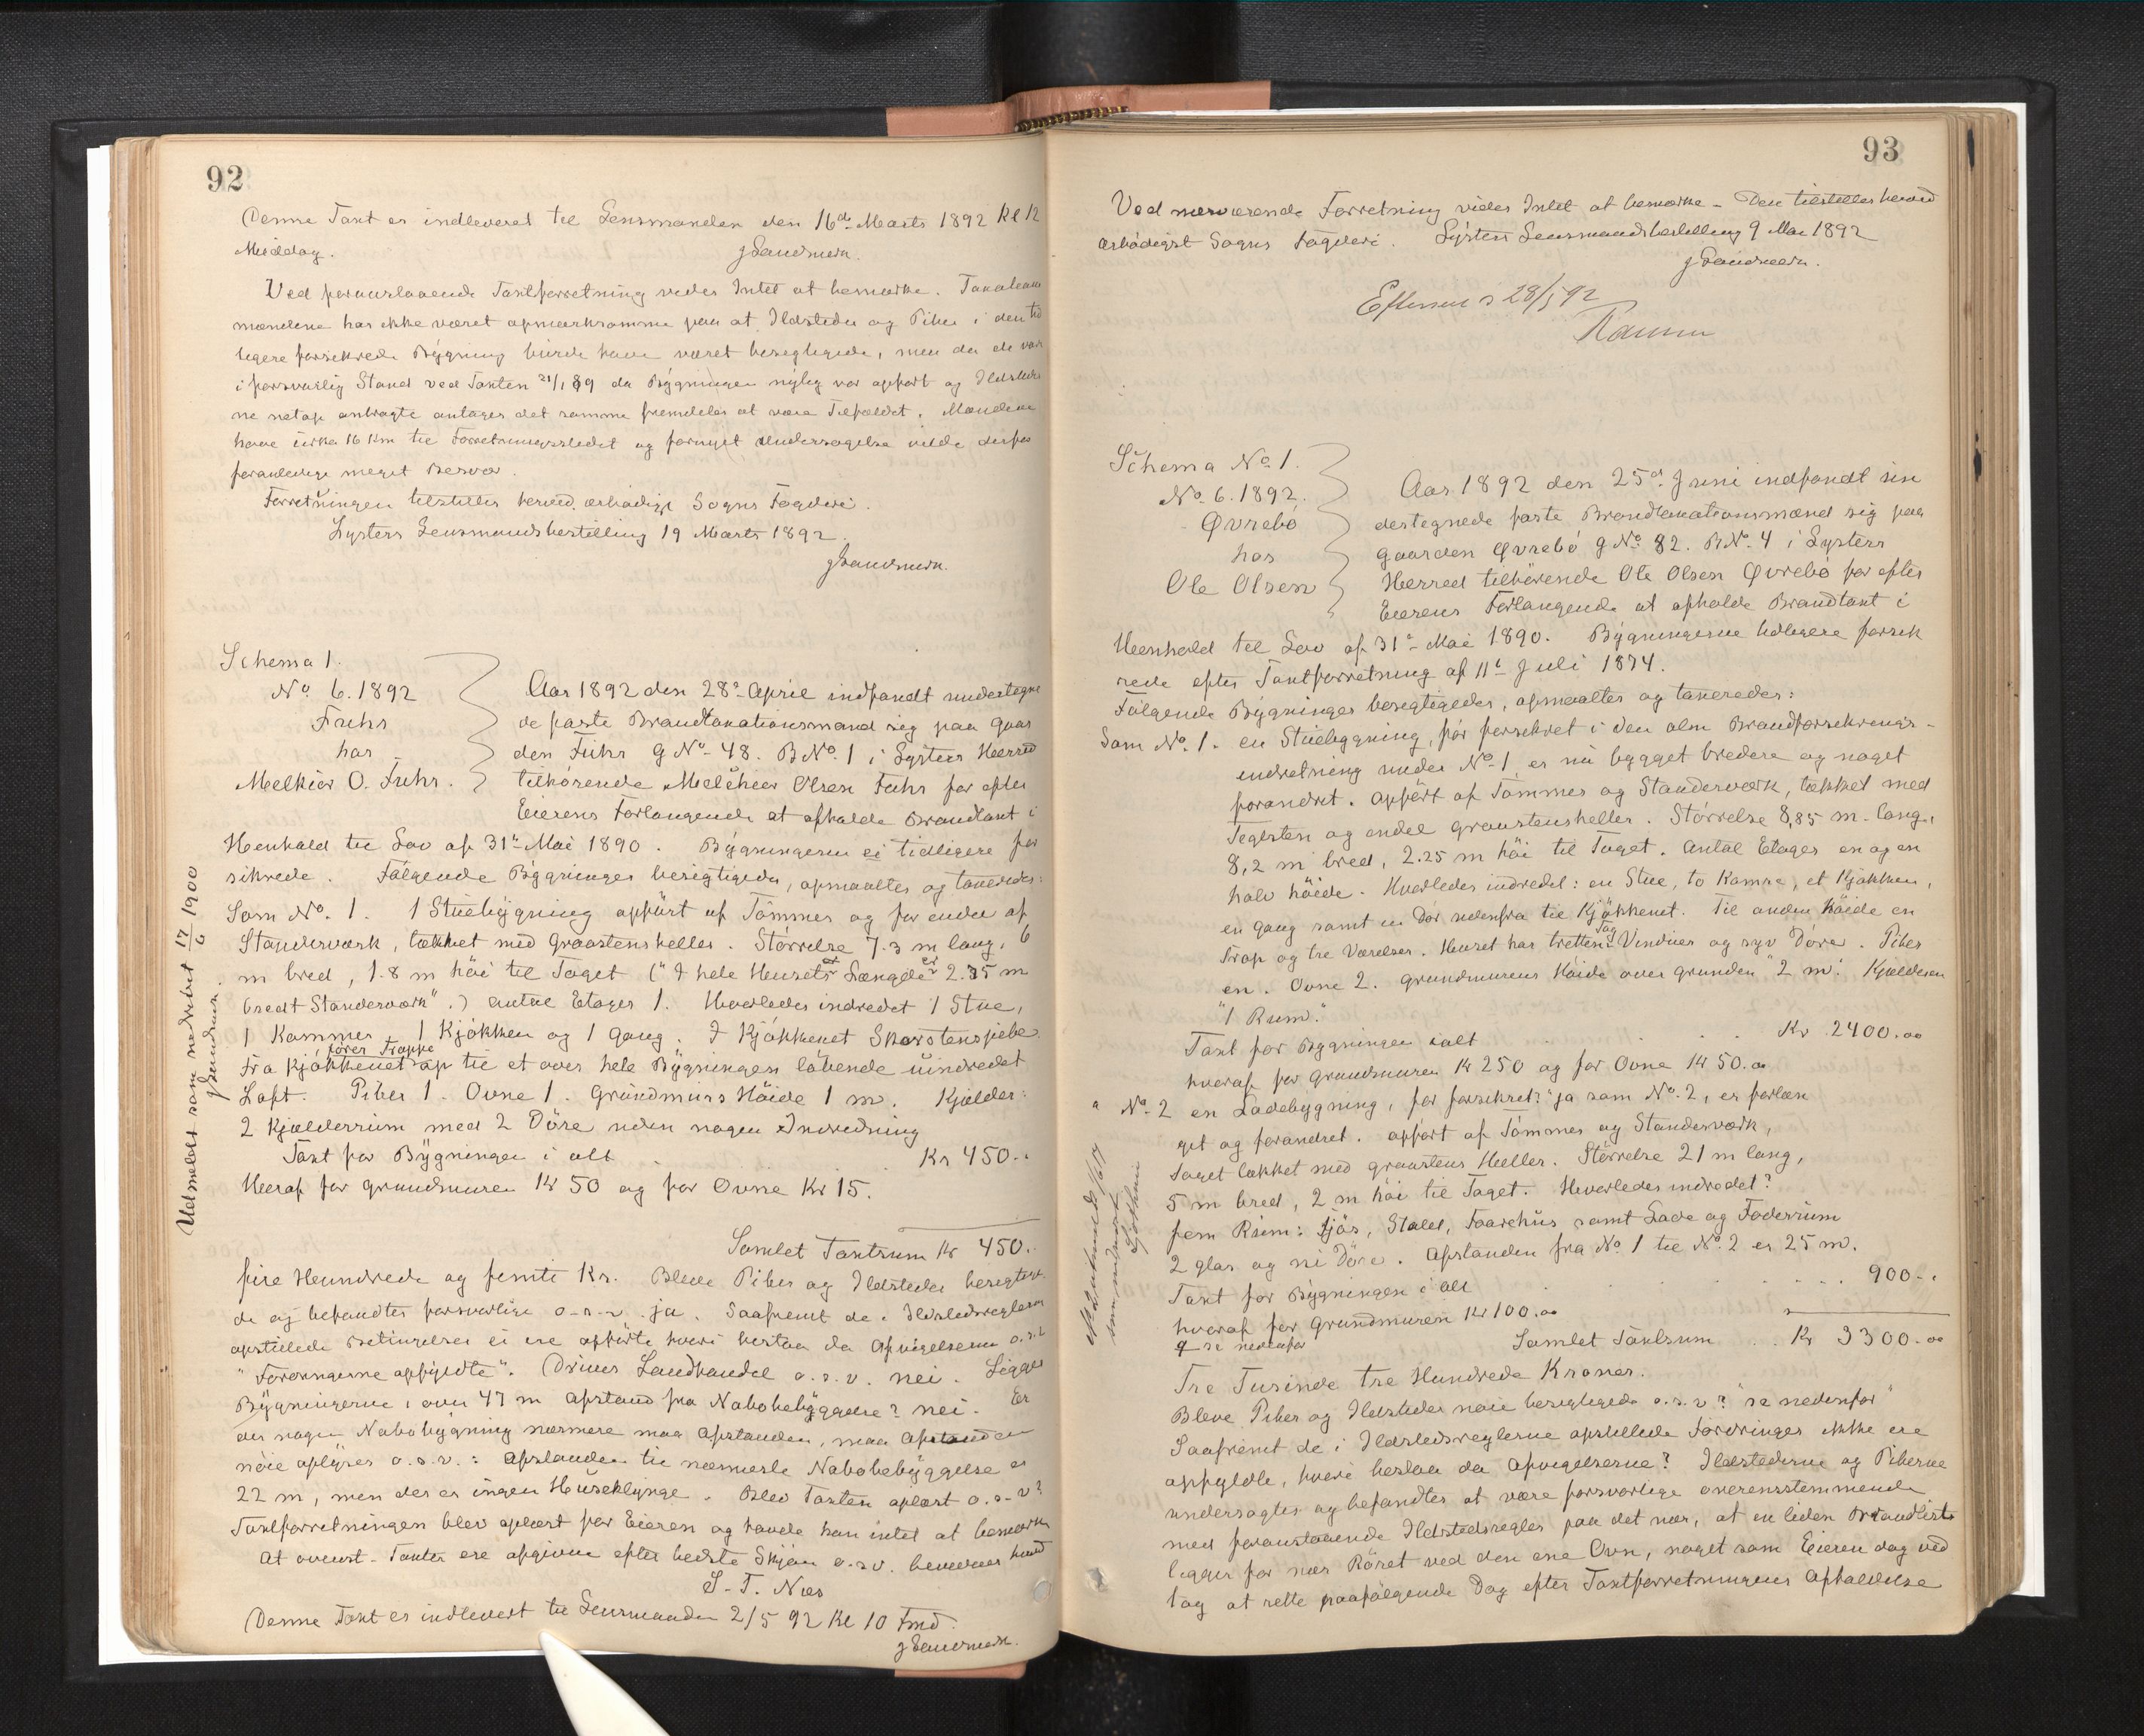 92
Denne Taxt er indleveret til Lensmanden den 16de Marts 1892 Kl 12
Middag.
Ved foranstaaende Taxtforretning vides Intet at bemærke. Taxations
mændene har ikke været opmærksomme paa at Ildsteder og Piber i den tid
ligere forsikrede Bygning burde have været besigtigede, men da de var
i forsvarlig Stand ved Taxten 21/1 89 da Bygningen nylig var opført og Ildstede
ne netop anbragte antages det samme fremdeles at være Tilfældet. Mændene
have cirka 16 Km til Forretningsstedet og fornyet Undersøgelse vilde derfor
foranledige meget Besvær.
Forretningen tilstilles herved ærbødigst Sogns Fogderi.
Lysters Lensmandsbestilling 19 Marts 1892
Schema 1.
No 6. 1892
Fuhr
hos
Melkior O. Fuhr.
Aar 1892 den 28de April indfandt undertegne
de faste Brandtaxationsmænd sig paa Gaar
den Fuhr G No 48. B No 1 i Lysters Herred
tilhørende Melchior Olsen Fuhr for efter
Eierens Forlangende at afholde Brandtaxt i
Henhold til Lov af 31te Mai 1890. Bygningerne ei tidligere for
sikrede. Følgende Bygninger besigtigedes, opmaaltes og taxeredes:
Som No. 1. 1 Stuebygning opført af Tømmer og for endel af
Standerværk, tækket med Graastensheller. Størrelse 7.3 m lang, 6
m bred, 1.8 m høi til Taget ("I hele Husets Længde er 2.35 m
bredt Standerværk".) Antal Etager 1. Hvorledes indredet 1 Stue,
1 Kammer 1 Kjøkken og 1 Gang. I Kjøkkenet Skorstenspibe.
fører Trappe
Fra Kjøkkenet op til et over hele Bygningen løbende uindredet
Loft. Piber 1. Ovne 1. Grundmurs Høide 1 m. Kjælder:
2 Kjælderrum med 2 Døre uden nogen Indredning
Taxt for Bygningen i alt Kr 450..
Heraf for Grundmuren Kr 50 og for Ovne Kr 15.
Samlet Taxtsum Kr 450..
fire Hundrede og femti Kr. Bleve Piber og Ildsteder besigtige
de og befandtes forsvarlige o.s.v. ja. Saafremt de i Ildstedsreglerne
opstillede Betingelser ei ere opførte hvori bestaa da Afvigelserne o.s.v
"Fordringerne opfyldte". Drives Landhandel o.s.v. nei. Ligger
Bygningerne i over 47 m Afstand fra Nabobebyggelse? nei. Er
der nogen Nabobygning nærmere maa Afstanden, maa Afstanden
nøie oplyses o.s.v.: Afstanden til nærmeste Nabobebyggelse er
22 m, men der er ingen Huseklynge. Blev Taxten oplæst o.s.v?
Taxtforretningen blev oplæst for Eieren og havde han intet at bemærke
At ovenst. Taxter ere afgivne efter bedste Skjøn o.s.v. bevidnes herved
S. T. Næs
Denne Taxt er indleveret til Lensmanden 2/5 92 Kl 10 Fmd.
Udmeldt som nedrevet 17/6 1900
93
Ved nærværende Forretning vides Intet at bemærke – Den tilstilles herved
ærbødigst Sogns Fogderi. Lysters Lensmandsbestilling 9 Mai 1892
28/5 92
Schema No 1.
No 6. 1892.
Øvrebø
hos
Ole Olsen
Aar 1892 den 25de Juni indfandt un
dertegnede faste Brandtaxationsmænd sig paa
Gaarden Øvrebø G No 82. B No. 4 i Lysters
Herred tilhørende Ole Olsen Øvrebø for efter
Eierens Forlangende at afholde Brandtaxt i
Henhold til Lov af 31te Mai 1890. Bygningerne tidligere forsik
rede efter Taxtforretning af 11te Juli 1874.
Følgende Bygninger besigtigedes, opmaaltes og taxeredes:
Som No. 1. en Stuebygning, før forsikret i den alm Brandforsikrings-
indretning under No 1, er nu bygget bredere og noget
forandret. Opført af Tømmer og Standerværk, tækket med
Teglsten og endel Graastensheller. Størrelse 8,85 m lang,
8,2 m bred, 2.25 m høi til Taget. Antal Etager en og en
halv høide. Hvorledes indredet: en Stue, to Kamre, et Kjøkken,
en Gang samt en Dør udenfra til Kjøkkenet. Til anden Høide en
Trap og tre Værelser. Huset har tretten Fag Vinduer og syv Døre. Piber
en. Ovne 2. Grundmurens Høide over Grunden "2 m". Kjælderen
"1 Rum."
Taxt for Bygningen ialt Kr 2400.oo
hvoraf for Grundmuren Kr 250 og for Ovne Kr 50.oo
" No. 2 en Ladebygning, før forsikret? "ja som No. 2, er forlæn
get og forandret. Opført af Tømmer og Standerværk,
Taget tækket med Graastens Heller. Størrelse 21 m lang,
5 m bred, 2 m høi til Taget. Hvorledes indredet?
fem Rum: Fjøs, Stald, Faarehus samt Lade og Foderrum
2 glas og ni Døre. Afstanden fra No 1 til No. 2 er 25 m.
Taxt for Bygningen i alt 900..
hvoraf for Grundmuren Kr 100.oo
se nedenfor
Samlet Taxtsum Kr 3300.oo
Tre Tusinde tre Hundrede Kroner.
Bleve Piber og Ildsteder nøie besigtigede o.s.v? "se nedenfor"
Saafremt de i Ildstedsreglerne opstillede Fordringer ikke ere
opfyldte, hvori bestaa da Afvigelserne? Ildstederne og Piberne
undersøgtes og befandtes at være forsvarlige overensstemmende
med foranstaaende Ildstedsregler paa det nær, at en liden Brandliste
ligger for nær Røret ved den ene Ovn, noget som Eieren dog ved
tog at rette paafølgende Dag efter Taxtforretningens Afholdelse